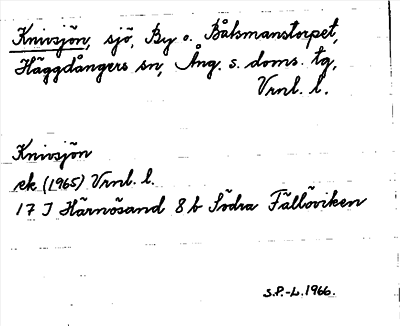 Knivsjön, sjö, By o. Båtsmanstorpet,
Häggdångers sn, Ång. s. doms. tg,
Vrnl. l.
Knivsjön
ek (1965) Vrnl. l.
17 J Härnösand 8 b Södra Fällöviken
S.P.-L. 1966.